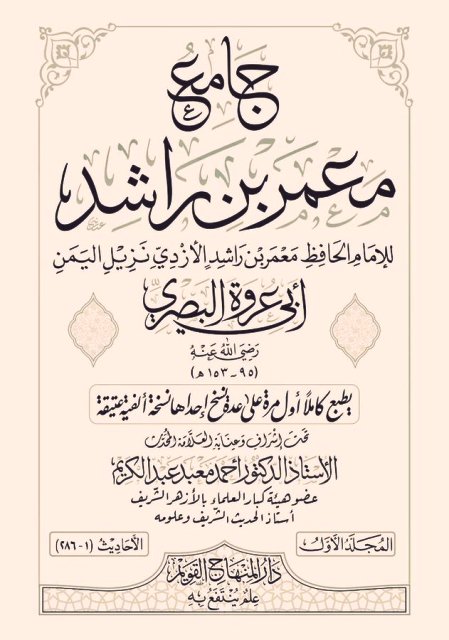 جامع
معمر بن راشد
للإمام الحافظ معمر بن راشد الأزدي نزيل اليمن
أبي عروة البصري
رضي الله عنه
(٩٥ - ١٥٣ هـ)
يطبع كاملًا أول مرة على عدة نسخ إحداها نسخة ألفية عتيقة
تحت إشراف وعناية العلامة المحدث
الأستاذ الدكتور أحمد معبد عبد الكريم
عضو هيئة كبار العلماء بالأزهر الشريف
أستاذ الحديث الشريف وعلومه
المجلد الأول
الأحاديث (١ - ٢٨٦)
دار المنهاج القويم
علم ينتفع به